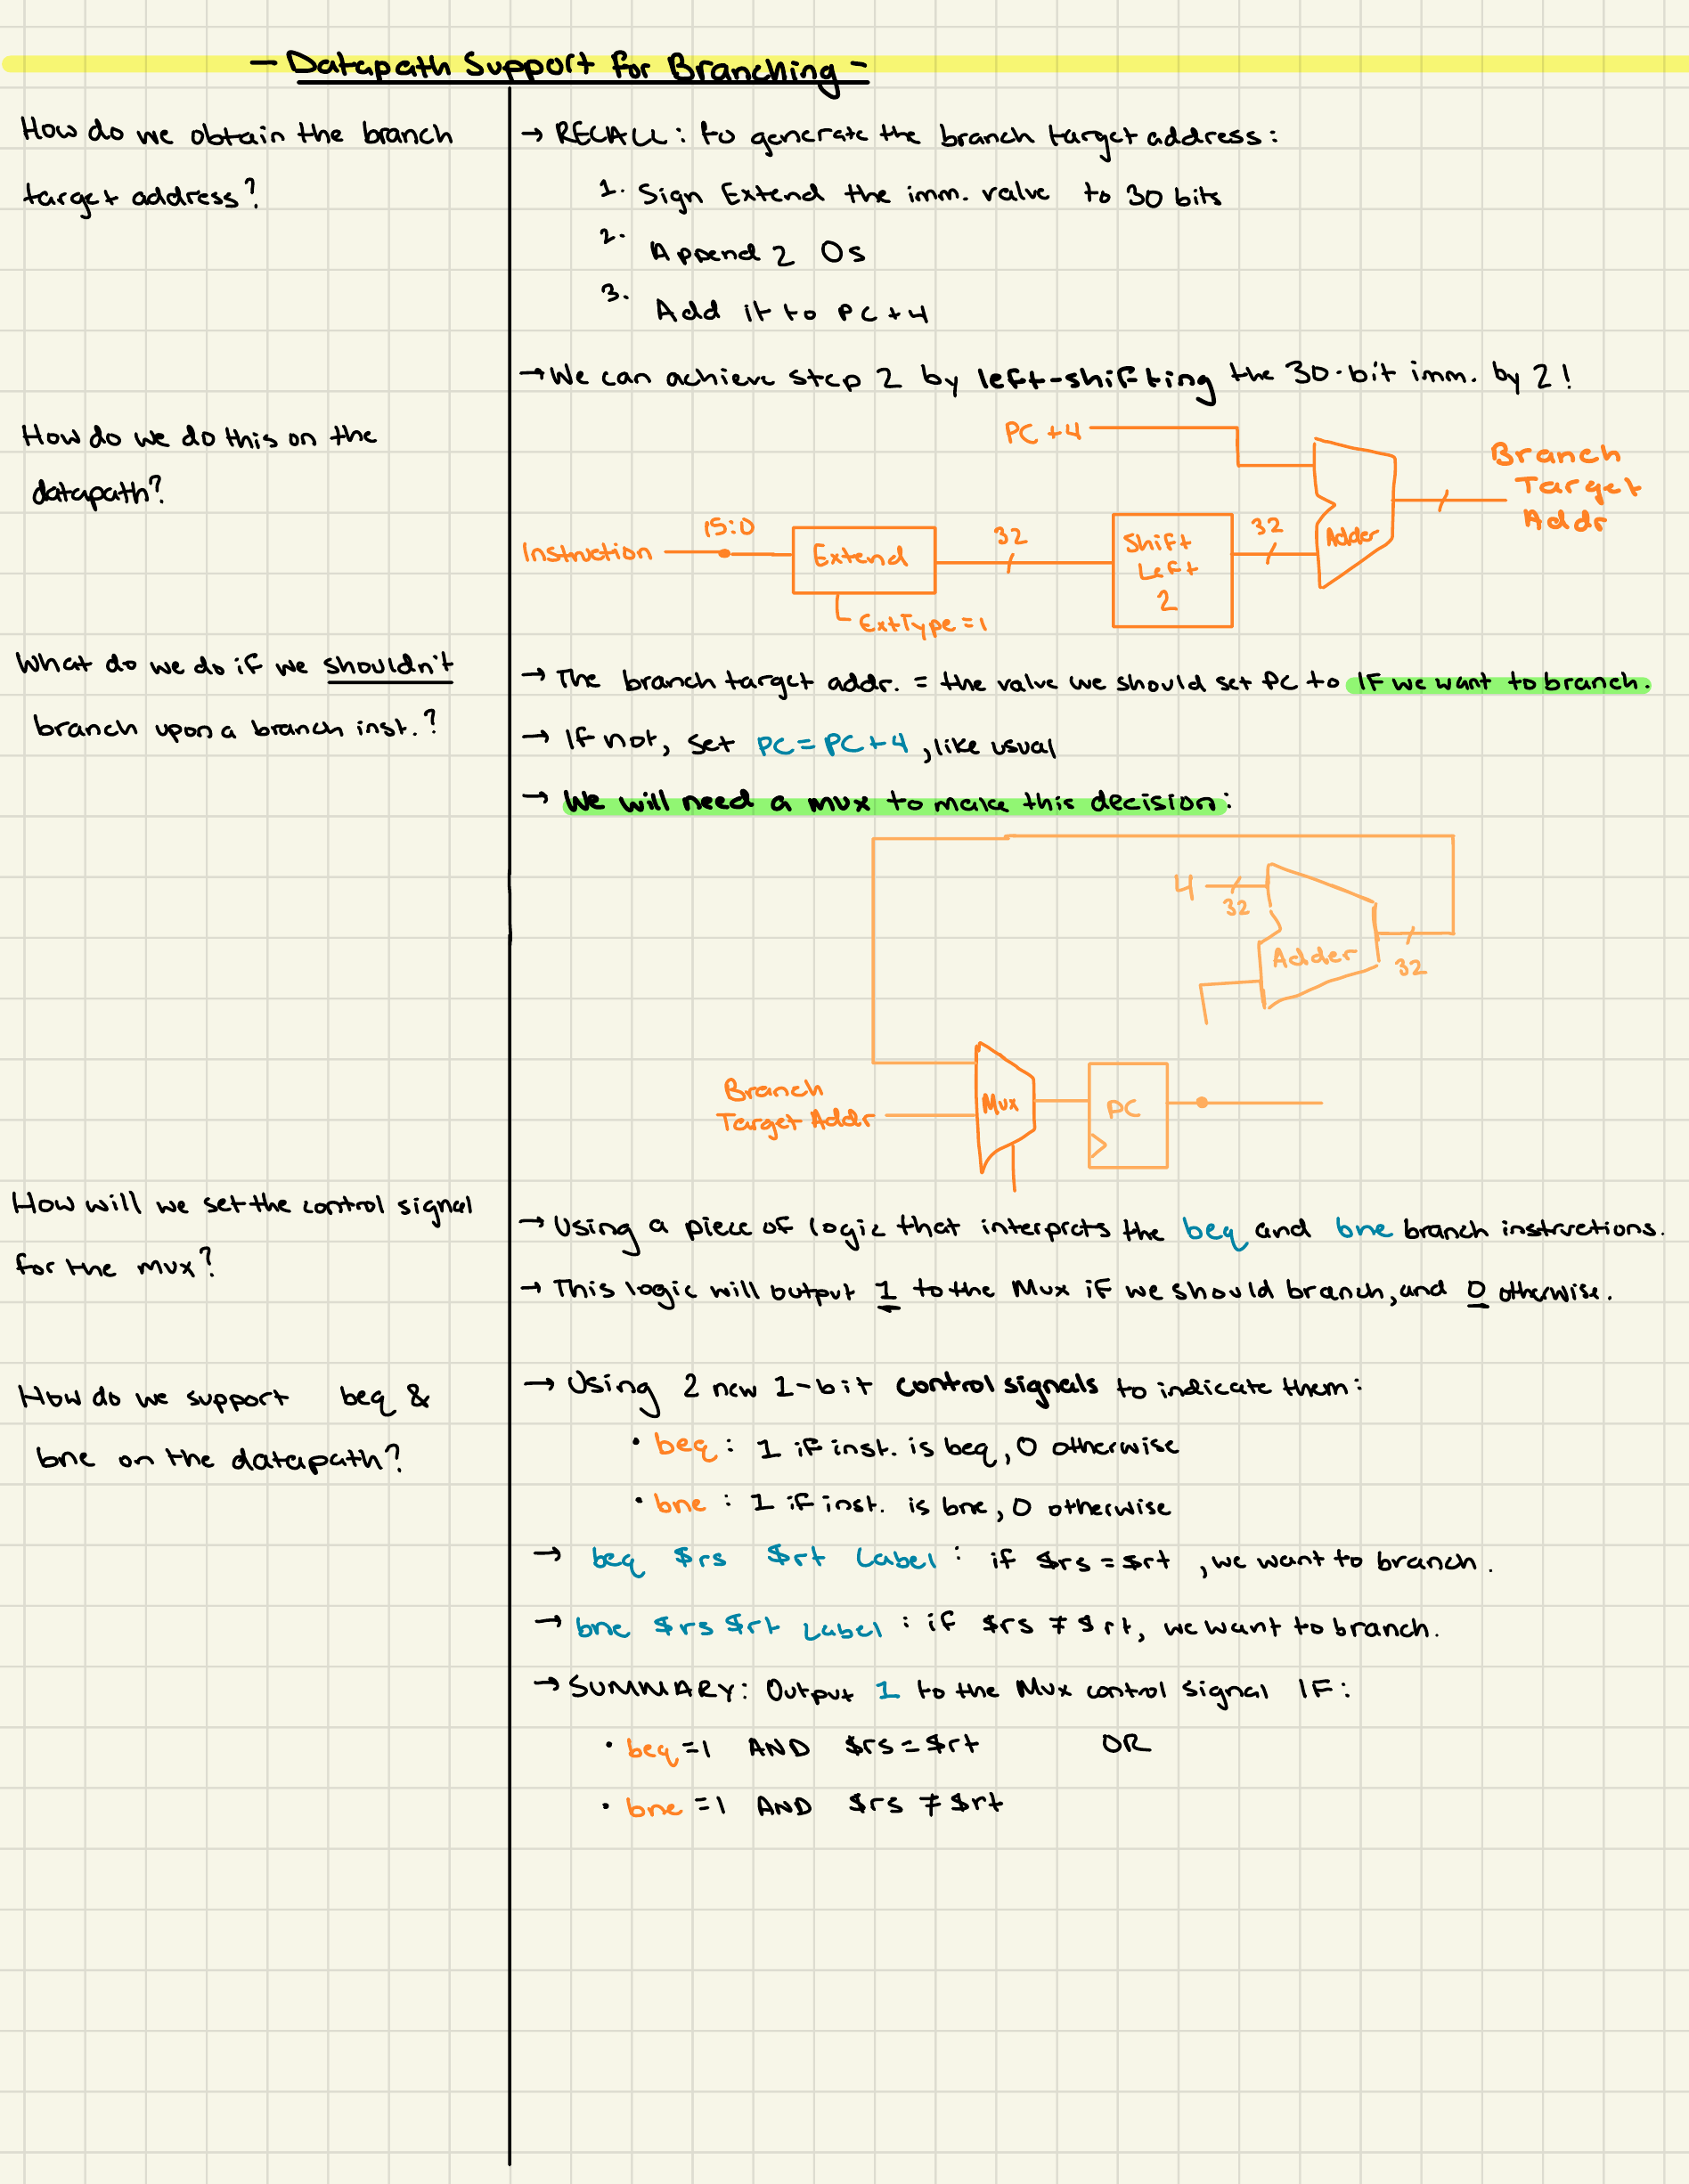 - Datapath Support for Branching -
How do we obtain the branch
target address?
→ RECALL: to generate the branch target address:
1. Sign Extend the imm. value to 30 bits
2. Append 2 0s
3. Add it to PC+4
→ We can achieve step 2 by left-shifting the 30-bit imm. by 2!
How do we do this on the
datapath?
PC +4
Branch
Target
Addr
Adder
Instruction
15:0
Extend
32
Shift
Left
2
32
ExtType=1
What do we do if we shouldn't
branch upon a branch inst.?
→ The branch target addr. = the value we should set PC to IF we want to branch.
→ If not, set PC=PC+4, like usual
→ We will need a mux to make this decision:
4
32
Adder
32
Branch
Target Addr
Mux
PC
How will we set the control signal
for the mux?
→ Using a piece of logic that interprets the beq and bne branch instructions.
→ This logic will output 1 to the Mux if we should branch, and 0 otherwise.
How do we support beq &
bne on the datapath?
→ Using 2 new 1-bit control signals to indicate them:
• beq: 1 if inst. is beq, 0 otherwise
• bne: 1 if inst. is bne, 0 otherwise
→ beq $rs $rt Label: if $rs = $rt, we want to branch.
→ bne $rs $rt Label: if $rs ≠ $rt, we want to branch.
→ SUMMARY: Output 1 to the Mux control signal IF:
• beq=1 AND $rs = $rt OR
• bne=1 AND $rs ≠ $rt